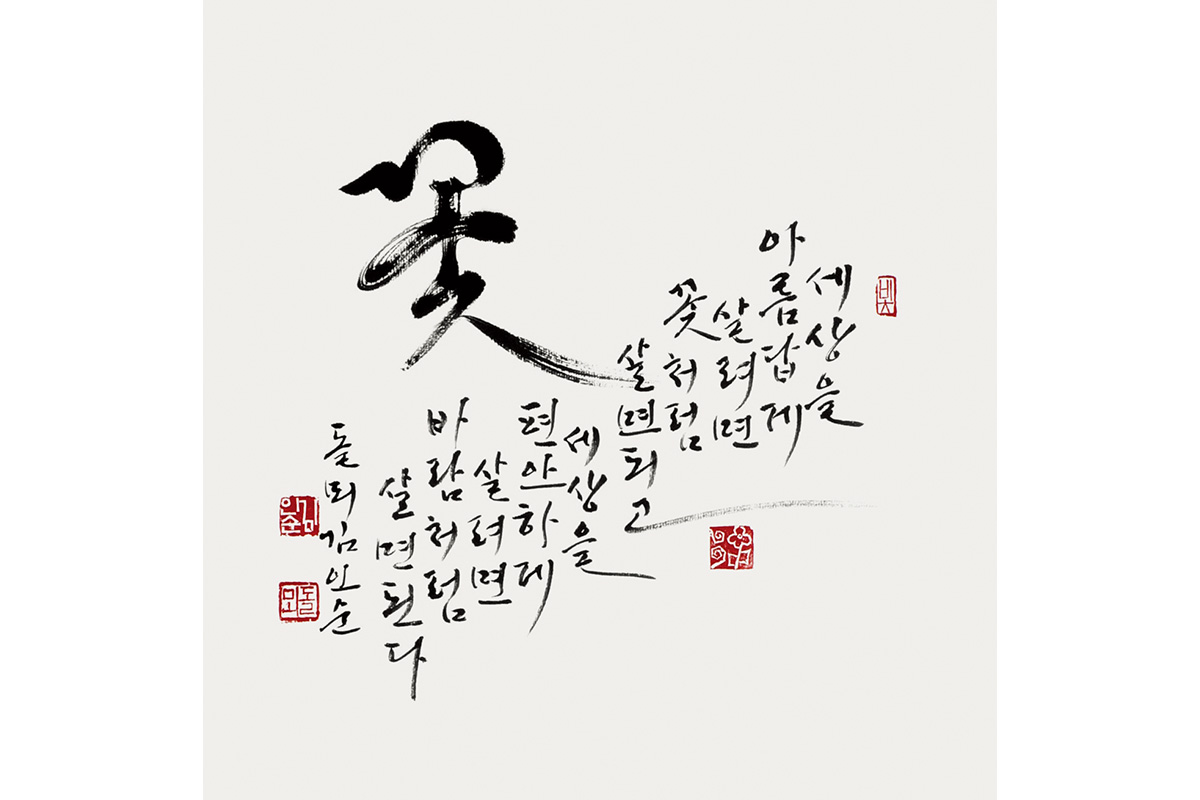 꽃
세상을
아름답게
살려면
꽃처럼
살면되고
세상을
편안하게
살려면
바람처럼
살면된다
돌뫼김인순
돌뫼